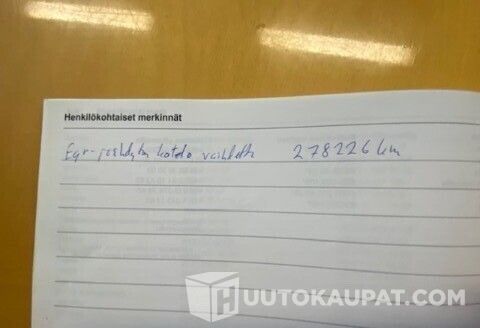 Henkilökohtaiset merkinnät
Egr-jäähdytin kotelo vaihdettu 278226 km
HUUTOKAUPAT.COM